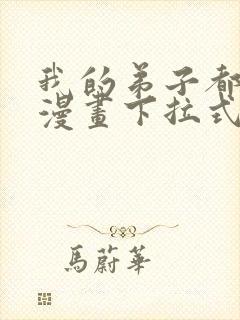 我的弟子都
漫畫下拉式
馬蔚華